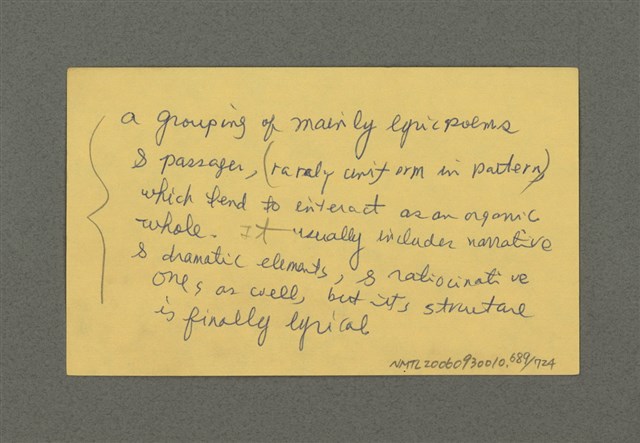 a grouping of mainly lyric poems
& passages, (rarely uniform in pattern)
which tend to interact as an organic
whole. It usually includes narrative
& dramatic elements, & ratiocinative
ones as well, but its structure
is finally lyrical
NMTL20060930010.689/724